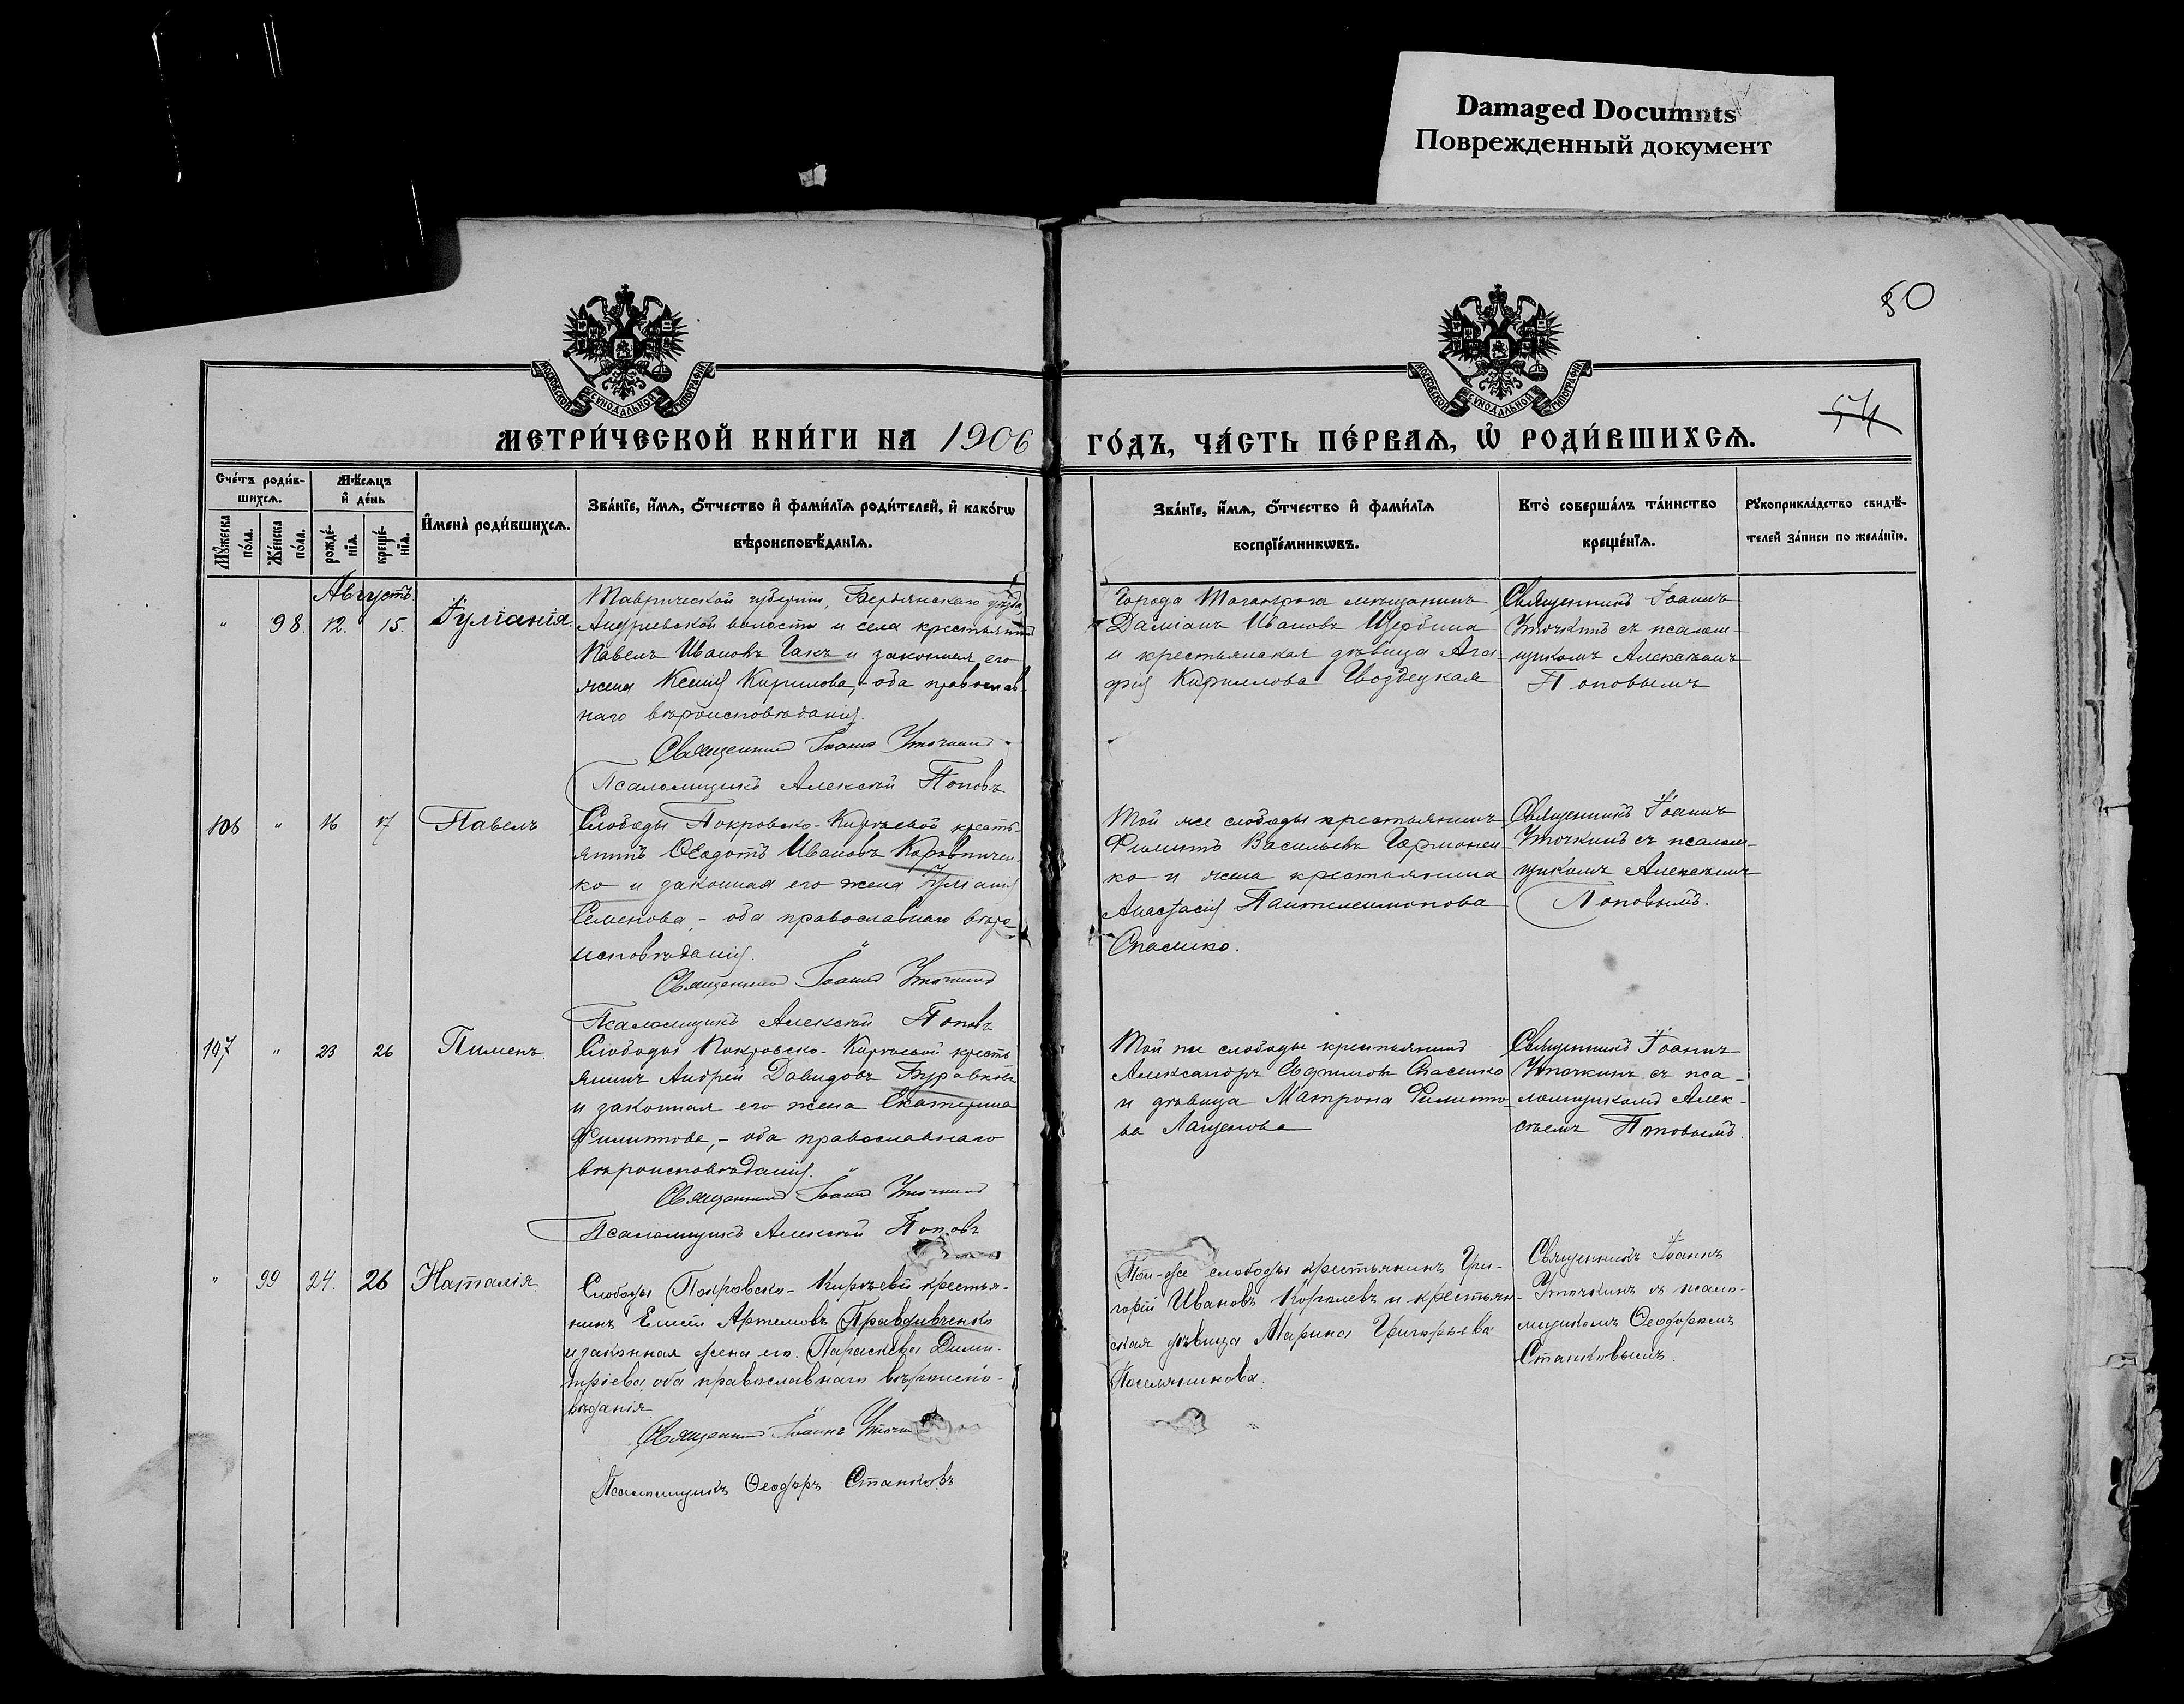 Damaged Documnts
Поврежденный документ
50
54
МОСКОВСКОЙ СѴНОДАЛЬНОЙ ТИПОГРАФІИ
МОСКОВСКОЙ СѴНОДАЛЬНОЙ ТИПОГРАФІИ
МЕТРИ́ЧЕСКОЙ КНИ́ГИ НА 1906
ГО́ДЪ, ЧА́СТЬ ПЕ́РВАѦ, Ѡ҆ РОДИ́ВШИХСѦ.
Сче́тъ роди́в-
шихсѧ.
Мꙋ́жеска
по́ла.
Же́нска
по́ла.
Мѣ́сѧцъ
и҆ де́нь
рожде́-
нїѧ.
креще́-
нїѧ.
И҆мена̀ роди́вшихсѧ.
Зва́нїе, и҆́мѧ, ѻ҆́тчество и҆ фами́лїѧ роди́телей, и҆ како́гѡ
вѣроисповѣ́данїѧ.
Зва́нїе, и҆́мѧ, ѻ҆́тчество и҆ фами́лїѧ
воспрїе́мникѡвъ.
Кто̀ соверша́лъ та́инство
креще́нїѧ.
Рꙋкоприкла́дство свидѣ́-
телей за́писи по жела́нїю.
Августъ
" 98. 12. 15. Іуліанія.
Таврической губерніи, Бердянскаго уѣзда,
Андреевской волости и села крестьянинъ
Павелъ Ивановъ Гакъ и законная его
жена Ксенія Кирилова, - оба православ-
наго вѣроисповѣданія.
Священникъ Іоаннъ Уточкинъ
Псаломщикъ Алексѣй Поповъ
Города Таганрога мѣщанинъ
Даміанъ Ивановъ Щербина
и крестьянская дѣвица Ага-
фія Кириллова Гвоздецкая
Священникъ Іоаннъ
Уточкинъ съ псалом-
щикомъ Алексѣемъ
Поповымъ
106 " 16 17 Павелъ
Слободы Покровско-Кирѣевой кресть-
янинъ Ѳеодотъ Ивановъ Кировичен-
ко и законная его жена Іуліанія
Семенова, - оба православнаго вѣро-
исповѣданія.
Священникъ Іоаннъ Уточкинъ
Псаломщикъ Алексѣй Поповъ
Той же слободы крестьянинъ
Филиппъ Васильевъ Гармонен-
ко и жена крестьянина
Анастасія Пантелеимонова
Спасенко.
Священникъ Іоаннъ
Уточкинъ съ псалом-
щикомъ Алексѣемъ
Поповымъ.
107 " 23 26 Пименъ.
Слободы Покровско-Кирѣевой кресть
янинъ Андрей Давидовъ Журавковъ
и законная его жена Екатерина
Филиппова, - оба православнаго
вѣроисповѣданія.
Священникъ Іоаннъ Уточкинъ
Псаломщикъ Алексѣй Поповъ
Той же слободы крестьянинъ
Александръ Евфимовъ Спасенко
и дѣвица Матрона Филиппо-
ва Лащенова
Священникъ Іоаннъ
Уточкинъ съ пса-
ломщикомъ Алек-
сѣемъ Поповымъ.
" 99 24. 26 Наталія.
Слободы Покровско-Кирѣевой крестья-
нинъ Елисей Артемовъ Правдивченко
и законная жена его Параскева Дими-
тріева, оба православнаго вѣроиспо-
вѣданія
Священникъ Іоаннъ Уточкинъ
Псаломщикъ Ѳеодоръ Станковъ
Той-же слободы крестьянинъ Гри-
горій Ивановъ Королевъ и крестьян-
ская дѣвица Марина Григорьева
Поселянинова.
Священникъ Іоаннъ
Уточкинъ съ псало-
мщикомъ Ѳеодоромъ
Станковымъ.